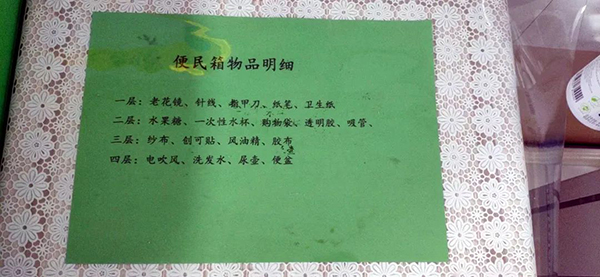 便民箱物品明细
一层：老花镜、针线、指甲刀、纸笔、卫生纸
二层：水果糖、一次性水杯、购物袋、透明胶、吸管、
三层：纱布、创可贴、风油精、胶布
四层：电吹风、洗发水、尿壶、便盆